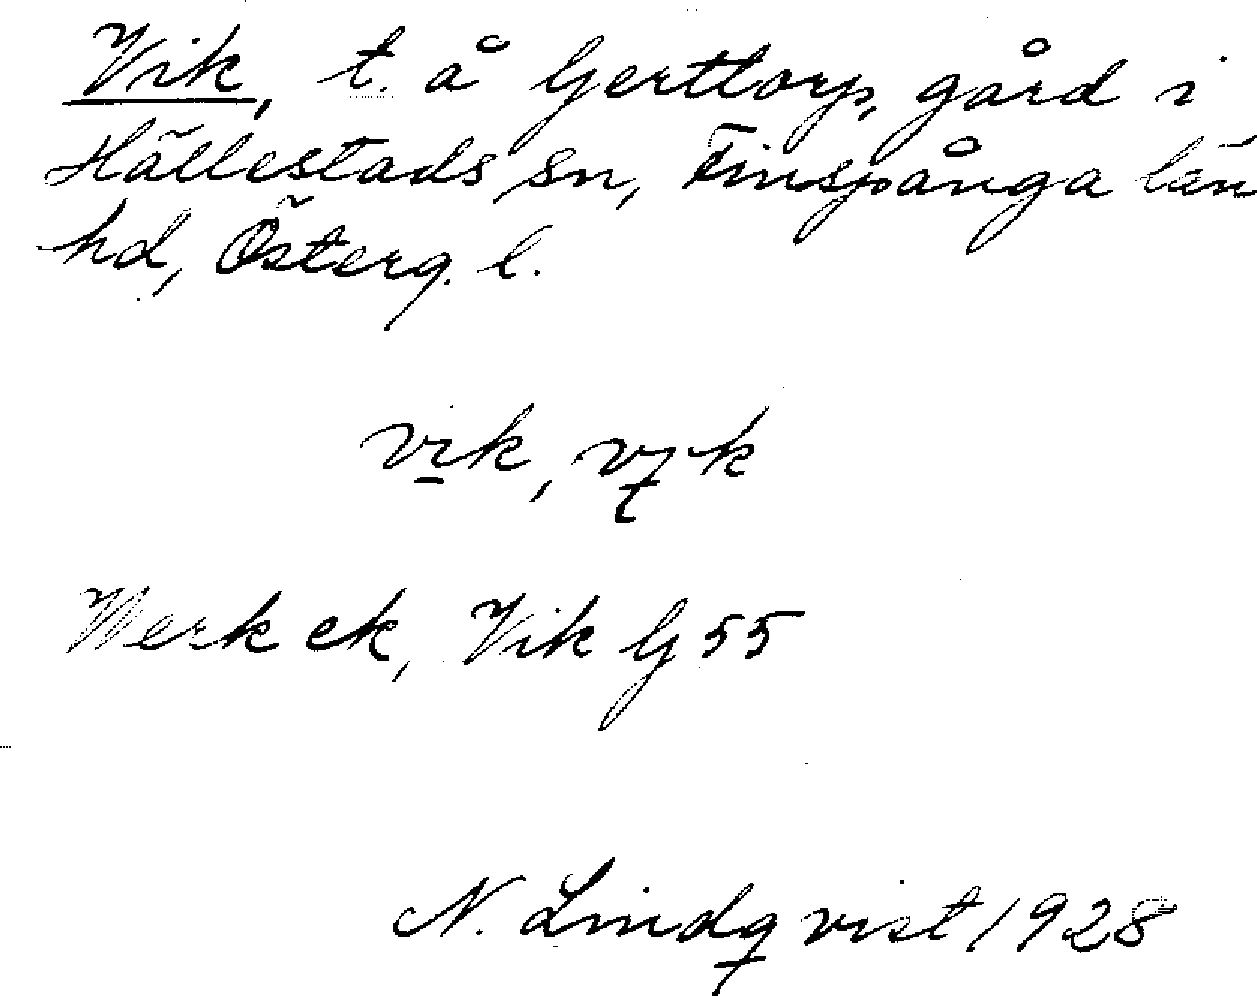 Vik, t. å Gerttorp, gård i
Hällestads sn, Finspånga län
hd, Österg. l.
vik, v k
Werk ek, Vik G 55
N. Lindqvist 1928